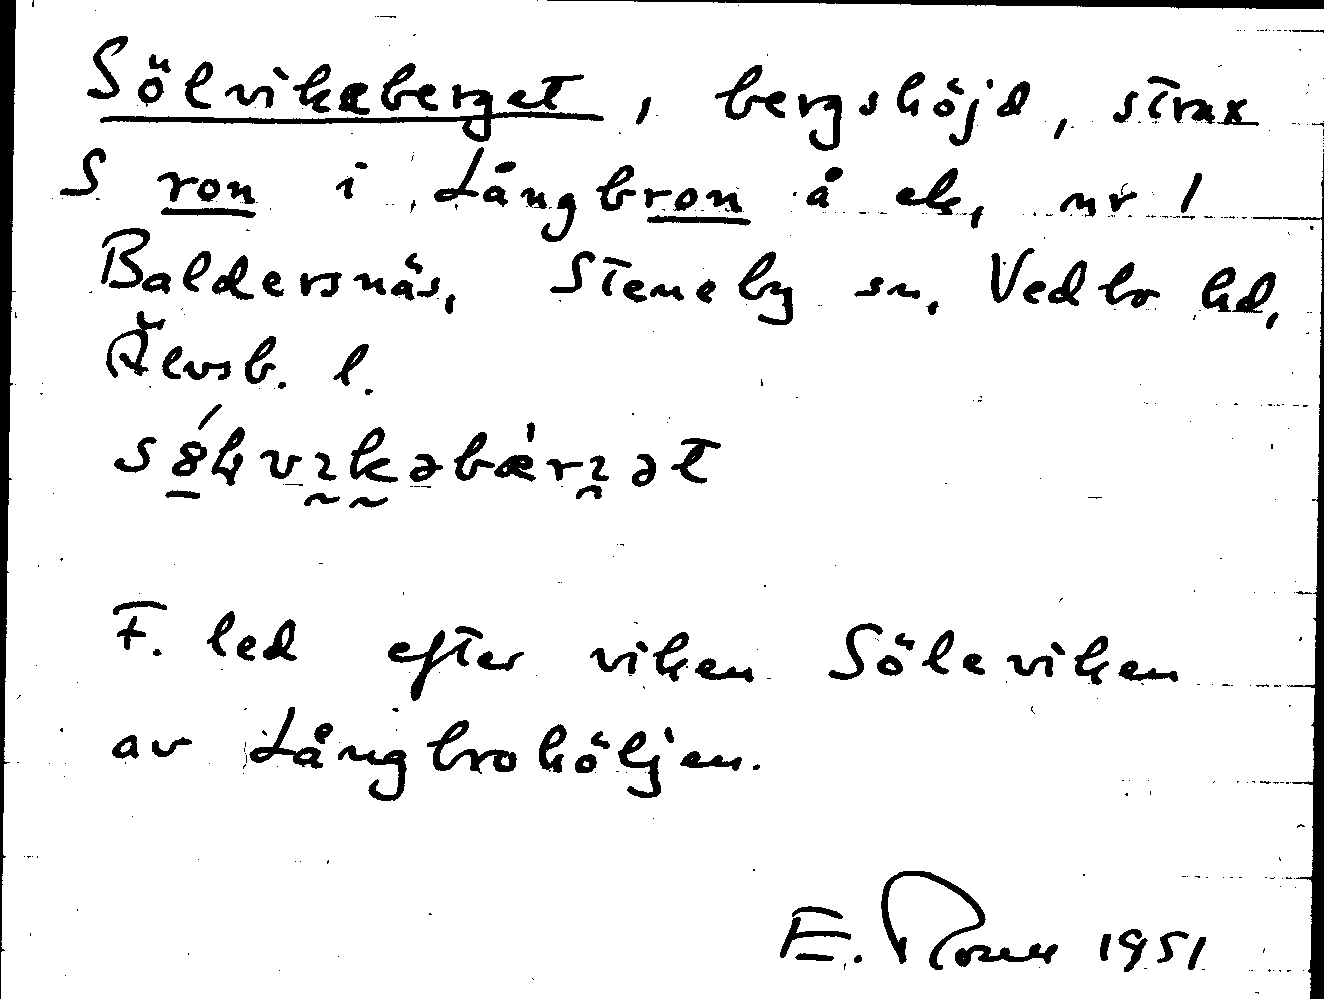 Sölvikeberget, bergshöjd, strax
S ron i Långbron å ek, nr 1
Baldersnäs, Steneby sn, Vedbo hd,
Älvsb. l.
F. led efter viken Söleviken
av Långbrohöljen.
E. 1951